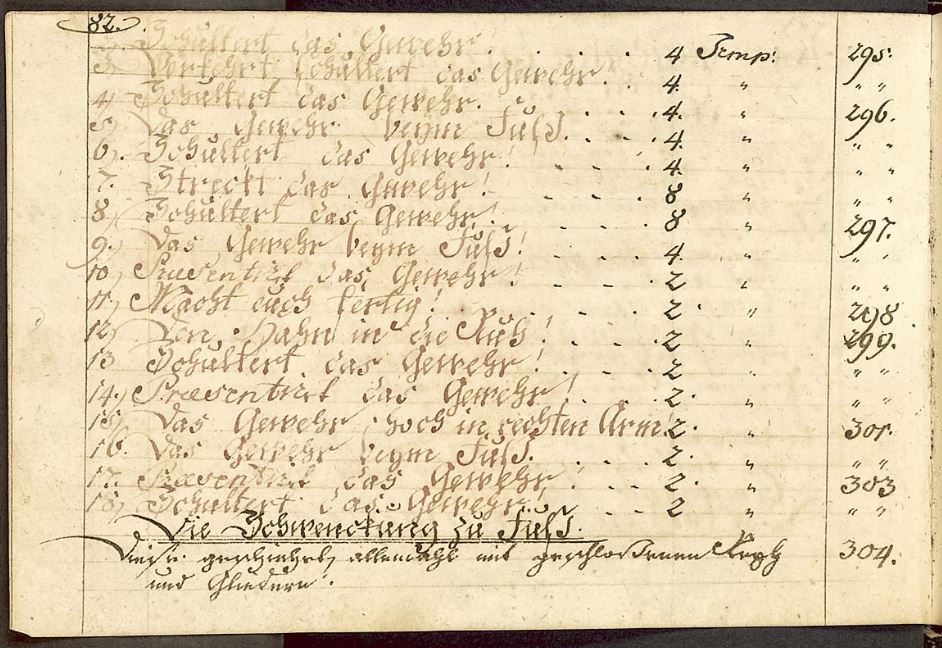 82.
2) Schultert das Gewehr! . . . . . 4 Temp: 295.
3. Verkehrt schultert das Gewehr. . . 4. " " "
4) Schultert das Gewehr. . . . . 4. " 296.
5) Das Gewehr beym Fuß. . . . 4. " " "
6). Schultert das Gewehr! . . . 4. " " "
7. Streckt das Gewehr! . . . . 8 " " "
8) Schultert das Gewehr! . . . 8 " 297.
9.) Das Gewehr beym Fuß! . . . 4 " " "
10) Præsentirt das Gewehr! . . . 2 " " "
11) Macht euch fertig! . . . . 2. " 298
12) Den Hahn in die Ruh! . . . 2 " 299.
13 Schultert das Gewehr! . . . 2 " " "
14.) Præsentirt das Gewehr! . . 2. " " "
15) Das Gewehr hoch in rechten Arm! 2. " 301.
16. Das Gewehr beym Fuß. . . . 2. " " "
17. Præsentirt das Gewehr . . . 2. " 303
18) Schultert das Gewehr! . . . 2 " " "
Die Schwenckung zu Fuß.
Diese geschiehet allemahl mit geschloßenen 304.
und Gliedern.